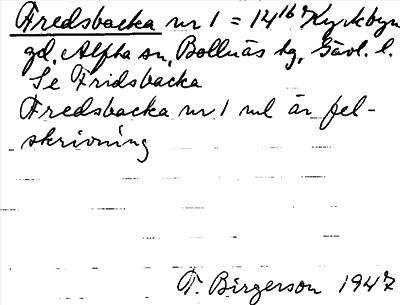 Fredsbacka nr 1 = 14¹⁶⁷ Kyrkbyn
gd, Alfta sn, Bollnäs tg, Gävl. l.
Se Fridsbacka
Fredsbacka nr 1 ml är fel-
skrivning
T. Birgerson 1947